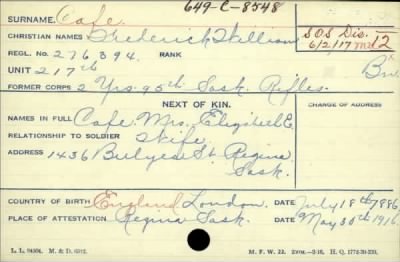 649-C-8548
SURNAME. Cafe.
CHRISTIAN NAMES Frederick William
REGL. NO. 276394. RANK
UNIT 217th
FORMER CORPS 2 Yrs. 95th Sask. Rifles.
SOS Dis.
6/2/17 12
NEXT OF KIN.
CHANGE OF ADDRESS
NAMES IN FULL Cafe, Mrs. Elizabeth E.
RELATIONSHIP TO SOLDIER Wife
ADDRESS 1436 Bulyea St. Regina
Sask.
COUNTRY OF BIRTH England London. DATE July 18th 1886
PLACE OF ATTESTATION Regina Sask. DATE May 30th 1916
L. L. M. & D. M. F. W. 22. H. Q. 1772-39-339.